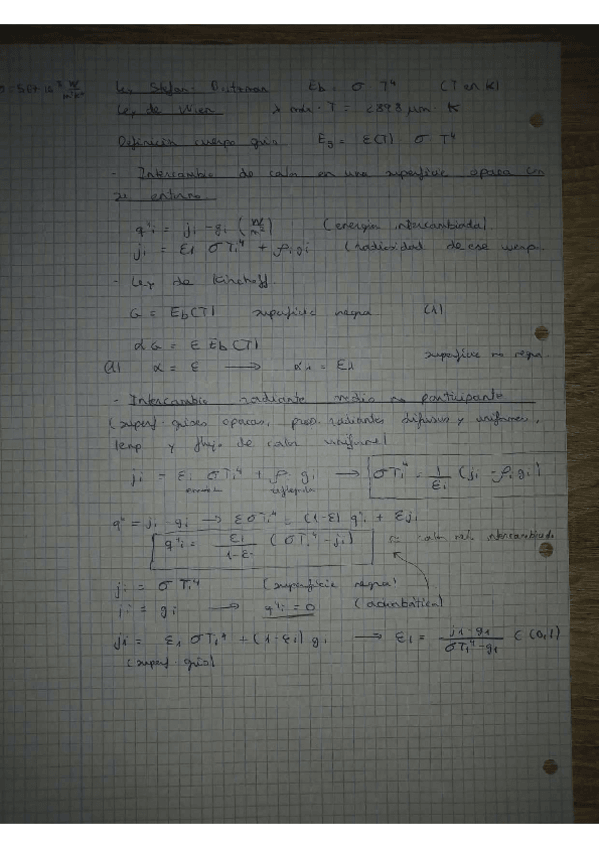 Ley Stefan-Bultzman Eb = σ · T⁴ (T en K)
Ley de Wien λ máx · T = 2898 μm · K
Definición cuerpo gris Eg = ε(T) · σ · T⁴
- Intercambio de calor en una superficie opaca con
su entorno
q''i = ji - gi (W/m²) (energía intercambiada)
ji = ε1 σTi⁴ + ρi gi (radiosidad de ese cuerpo
- Ley de Kirchoff
G = Eb(T) superficie negra (1)
αG = ε Eb(T)
(1) α = ε → αλ = ελ superficie no negra
- Intercambio radiante medio no participante
(superf grises opacas, prop. radiantes difusas y uniformes,
temp y flujo de calor uniforme)
ji = εi σTi⁴ + ρi gi → σTi⁴ = 1/εi (ji - ρi gi)
q'' = ji - gi → εσTi⁴ = (1-ε) q''i + εji
q''i = εi/1-εi (σTi⁴ - ji) = calor net. intercambiado
ji = σ Ti⁴ (superficie negra)
ji = gi → q''i = 0 (adiabática)
j1 = ε1 σT1⁴ + (1-ε1) g1 → ε1 = j1-g1/σT1⁴-g1 ∈ (0,1)
(superf gris)